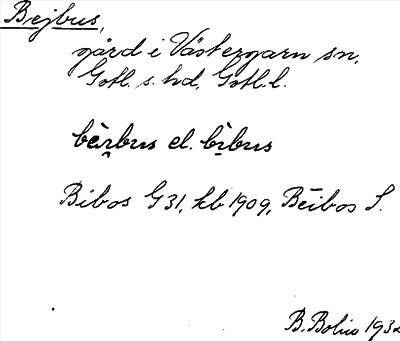 Bejbus,
gård i Västergarn sn,
Gotl. s. hd, Gotl. l.
bèi̯bus el. bìbus
Bibos G31, kb 1909, Bēibos S.
B. Bolin 1932